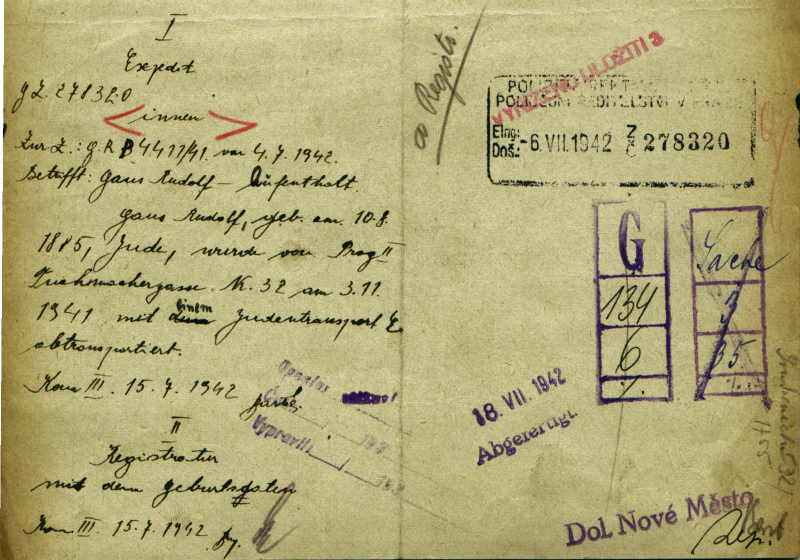 I
Expedit
gZ. 278320
innen
Zur Z.: g.R B 4417/41. von 4.7.1942.
Betrifft: Gans Rudolf – Aufenthalt.
Gans Rudolf, geb. am. 10.8.
1885, Jude, wurde von Prag II
Tuchmachergasse. N. 32 am 3.11.
1941 mit einem Judentransport E
abtransportiert.
Kom III. 15.7.1942
II
Registratur
mit dem Geburtsdaten
Kom III. 15.7.1942
Vypravil:
194
Registr.
VYŘÍZENO ULOŽITI 3
POLIZEIDIREKT
POLICEJNÍ ŘEDITELSTVÍ V
Eing: Došl: -6. VII. 1942 Z Č 278320
G
134
6
Sache
3
35
18. VII. 1942
Abgefertigt
Dol. Nové Město